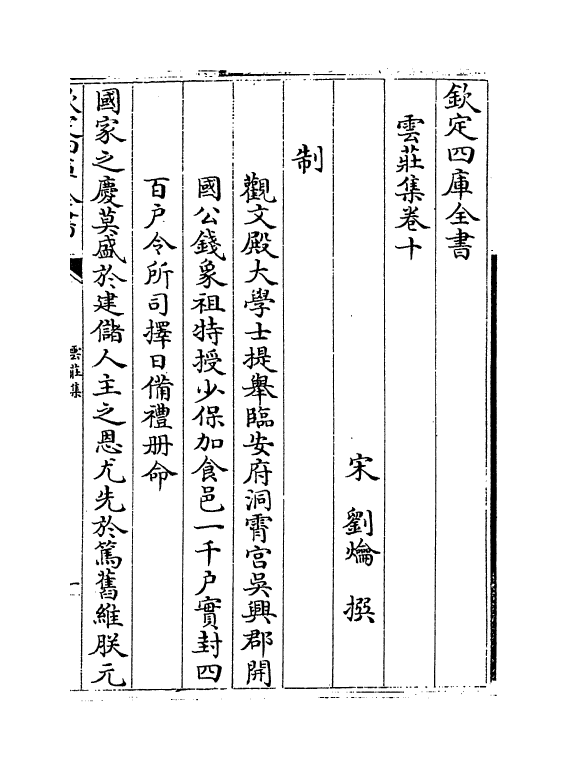 欽定四庫全書
雲莊集卷十
宋 劉爚 撰
制
觀文殿大學士提舉臨安府洞霄宫吳興郡開
國公錢象祖特授少保加食邑一千户實封四
百户令所司擇日備禮册命
國家之慶莫盛於建儲人主之恩尤先於篤舊維朕元
欽定四庫全書
雲莊集
一